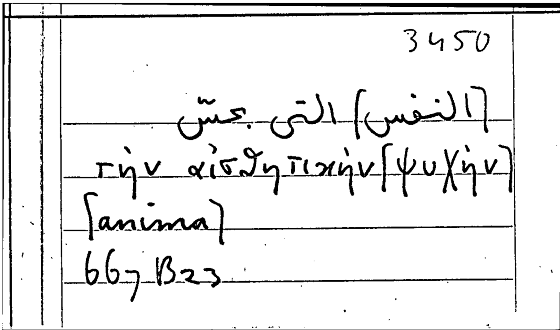 3450
[النفس] التى تحسّ
τὴν αἰσθητικὴν [ψυχὴν]
[anima]
667 B23